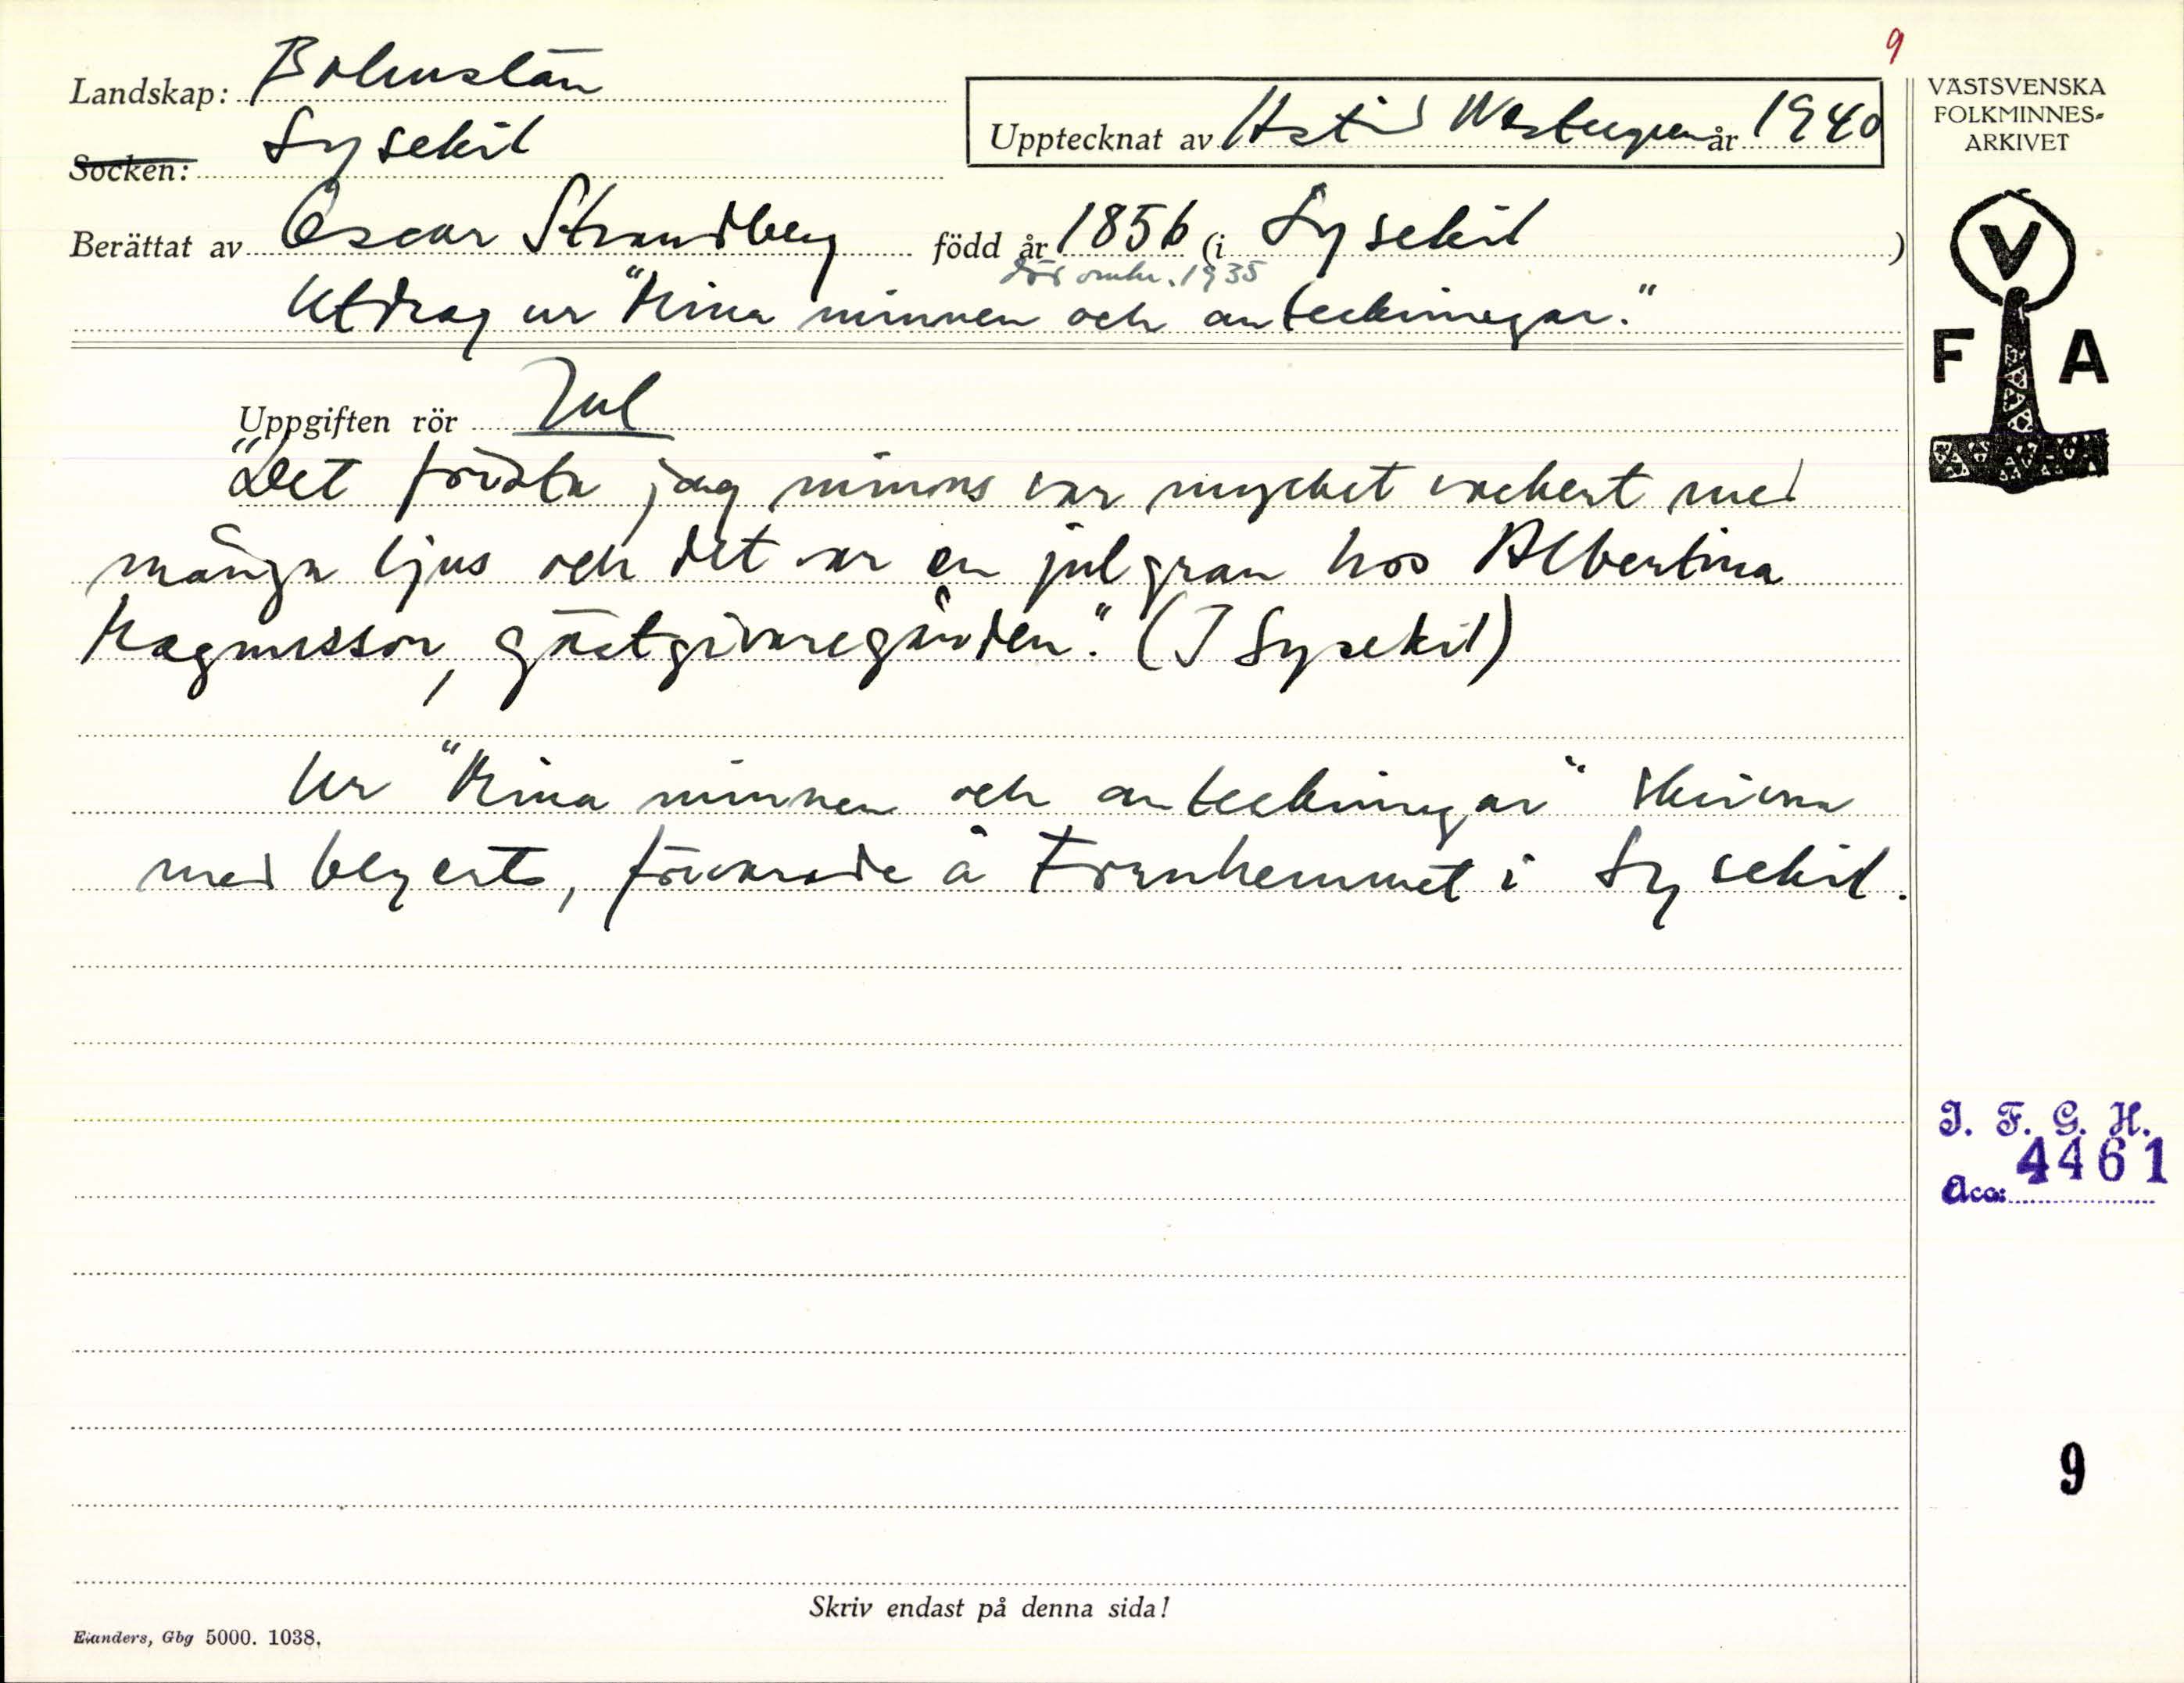 9
Landskap: Bohuslän
Socken: Lysekil
Upptecknat av Astrid Westergren år 1940
Berättat av Oscar Strandberg född år 1856 (i Lysekil)
död omkr. 1935
Utdrag ur "Mina minnen och anteckningar."
Uppgiften rör Jul
"Det första jag minns var mycket vackert med
många ljus och det var en julgran hos Albertina
Magnusson, gästgivaregården." (I Lysekil)
Ur "Mina minnen och anteckningar" skrivna
med blyerts, förvarade å Fornhemmet i Lysekil.
Skriv endast på denna sida!
Elanders, Gbg 5000. 1038.
VÄSTSVENSKA
FOLKMINNES-
ARKIVET
V
F A
I. F. G. H.
Acc: 4461
9